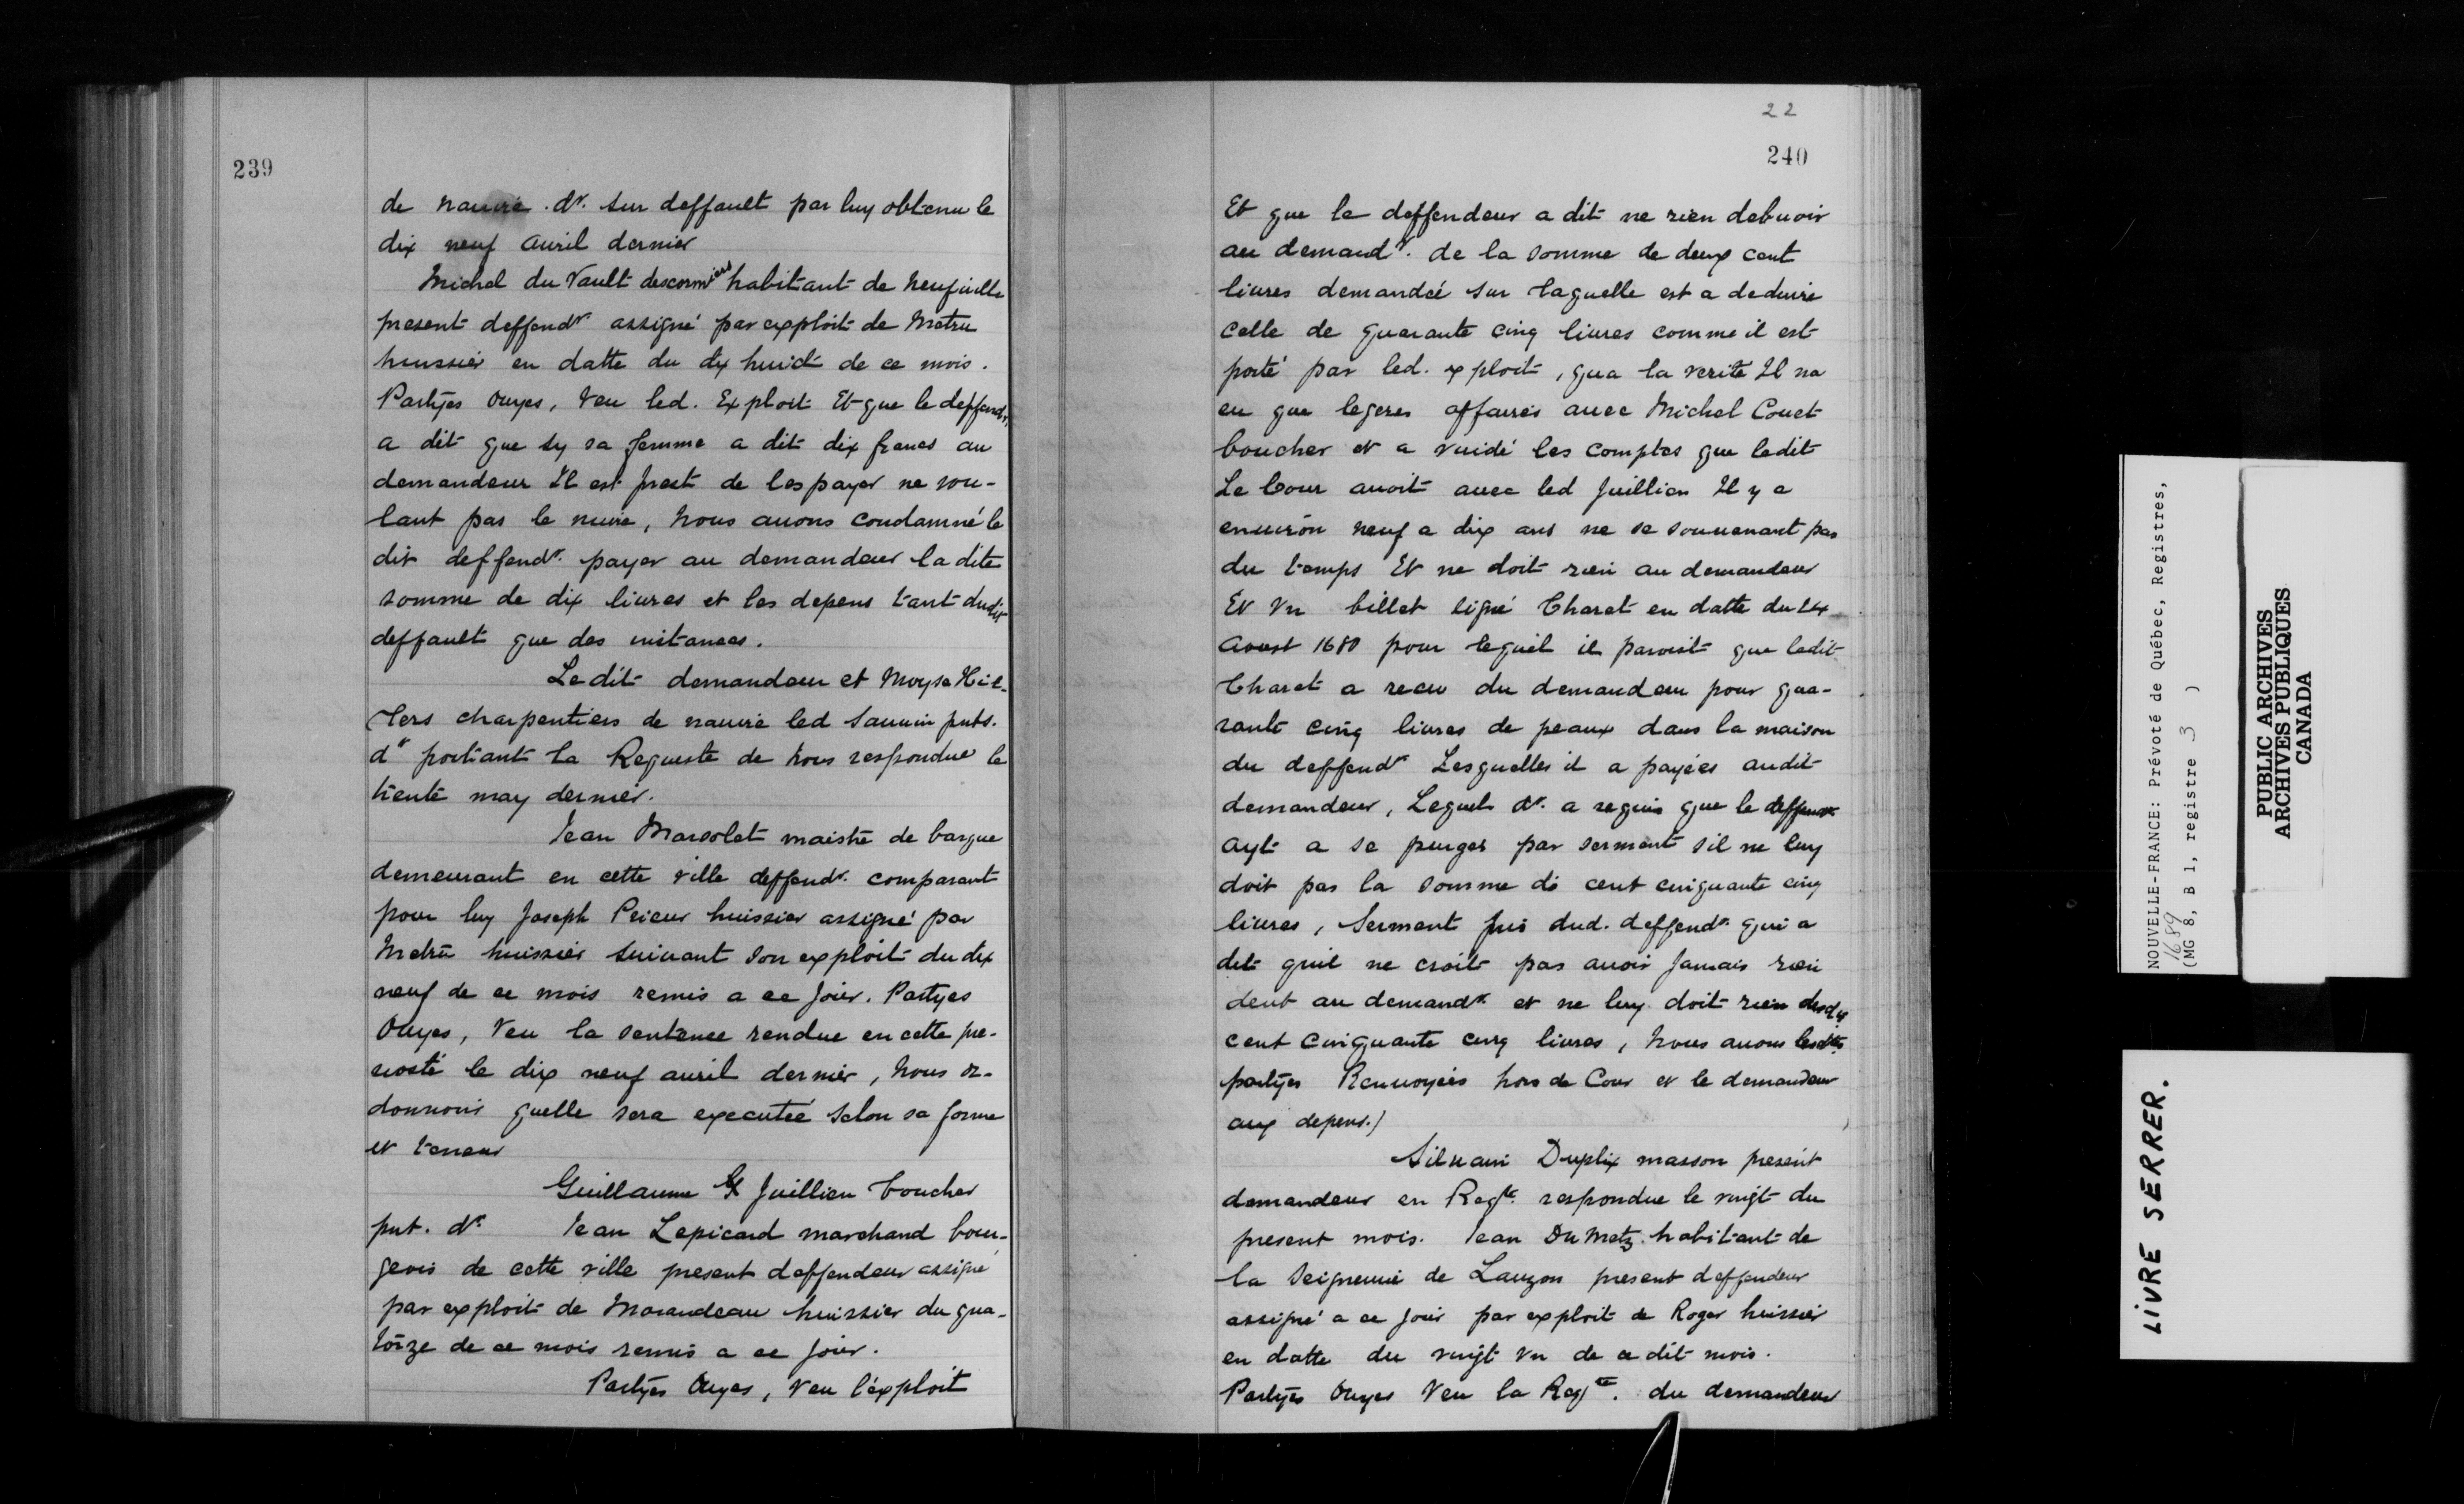 239
de nauire . dr. sur deffault par luy obtenu le
dix neuf auril dernier
Michel du Vault descormiers habitant de Neufuille
present deffendr assigné par exploit de Metru
huissier en datte du dix huict de ce mois.
Partyes Ouyes, Veu led. Exploit Et que le deffendr.
a dit que sy sa femme a dit dix francs au
demandeur Il est prest de les payer ne vou-
lant pas le nuire, Nous auons condamné le
dit deffendr. payer au demandeur la dite
somme de dix liures et les depens tant dudit
deffault que des instances.
Ledit demandeur et Moyse Hil-
lers charpentiers de nauire led
dr portant la Requeste de Nous respondue le
trente may dernier.
Jean Marsolet maistre de barque
demeurant en cette ville deffendr. comparant
pour luy Joseph Prieur huissier assigné par
Metru huissier suiuant son exploit du dix
neuf de ce mois remis a ce Jour. Partyes
Ouyes, Veu la sentence rendue en cette pre-
uosté le dix neuf auril dernier, Nous or-
donnons quelle sera executée selon sa forme
et teneur
Guillaume Juillien boucher
pnt. dr. Jean Lepicard marchand bour-
geois de cette ville present deffendeur assigné
par exploit de Marandeau huissier du qua-
torze de ce mois remis a ce Jour.
Partyes Ouyes, Veu l'exploit
22
240
Et que le deffendeur a dit ne rien debuoir
au demandr. de la somme de deux cent
liures demandée sur laquelle est a deduire
celle de quarante cinq liures comme il est
porté par led. exploit, qua la verite Il na
eu que legeres affaires auec Michel Couet
boucher et a vuidé les comptes que ledit
Le Cour auoit auec led Juillien Il y a
enuiron neuf a dix ans ne se souuenant pas
du temps Et ne doit rien au demandeur
Et Vn billet signé Charet en datte du 24
Aoust 1680 pour lequel il paroist que ledit
Charet a receu du demandeur pour qua-
rante cinq liures de peaux dans la maison
du deffendr Lesquelles il a payées audit
demandeur, Lequel dr. a requis que le deffendr
ayt a se purger par serment sil ne luy
doit pas la somme de cent cinquante cinq
liures, Serment pris dud. deffendr. qui a
dit quil ne croit pas auoir Jamais rien
deub au demandr. et ne luy doit rien desdits
cent cinquante cinq liures, Nous auons lesdites
partyes Renuoyées hors de Cour et le demandeur
aux depens.)
Siluain Duplix masson present
demandeur en Reqte. respondue le vingt du
present mois. Jean Du Metz habitant de
la Seigneurie de Lauzon present deffendeur
assigné a ce Jour par exploit de Roger huissier
en datte du vingt Vn de ce dit mois.
Partyes Ouyes Veu la Reqte. du demandeur
NOUVELLE-FRANCE: Prévoté de Québec, Registres,
1689
(MG 8, B 1, registre 3 )
PUBLIC ARCHIVES
ARCHIVES PUBLIQUES
CANADA
LIVRE SERRER.